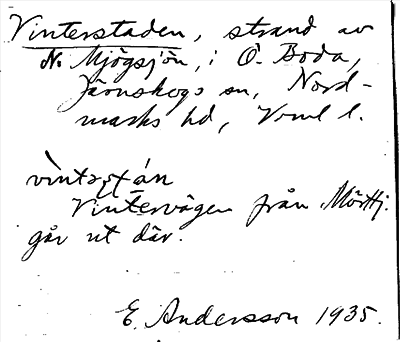 Vinterstaden, strand av
N. Mjögsjön, i Ö. Boda,
Järnskogs sn, Nord-
marks hd, Vrml l.
vìntəʂtán
Vintervägen från Mörttj.
går ut där.
E. Andersson 1935.